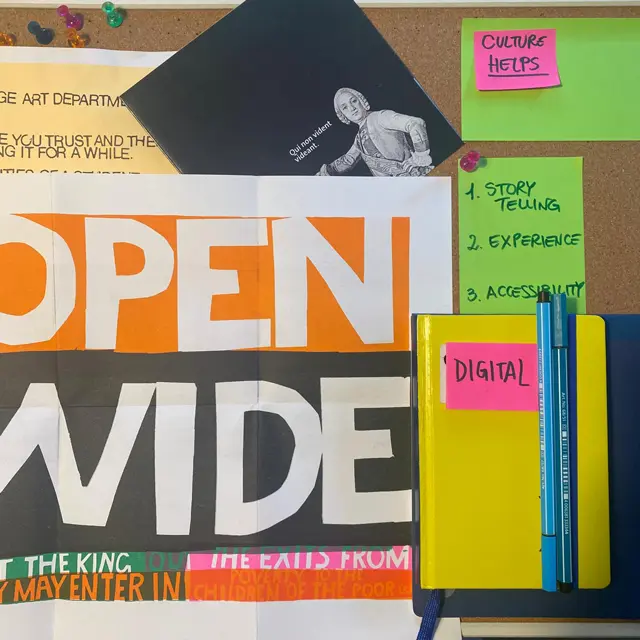 GE ART DEPARTME
E YOU TRUST AND THE
NG IT FOR A WHILE.
Qui non vident
videant.
CULTURE
HELPS
1. STORY
TELLING
2. EXPERIENCE
3. ACCESSIBILITY
DIGITAL
OPEN
WIDE
T THE KING
THE EXITS FROM
Y MAY ENTER IN
POVERTY TO THE
CHILDREN OF THE POOR